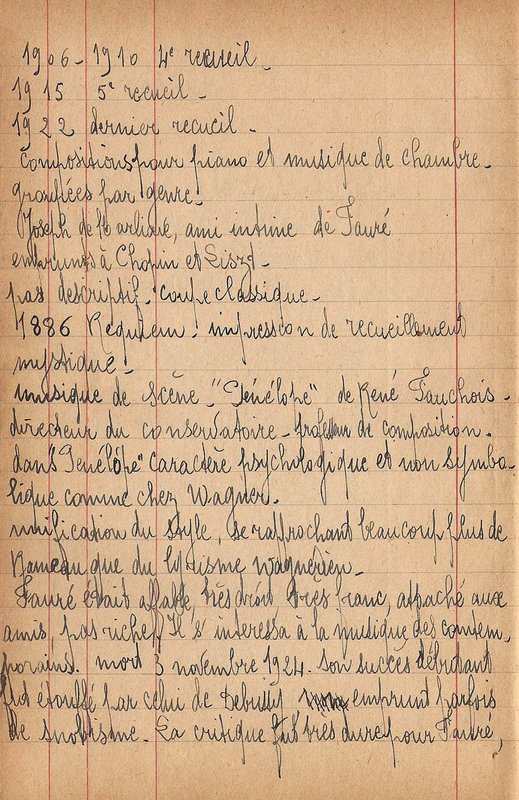 1906-1910 4e recueil.
1915 5e recueil -
1922 dernier recueil -
Compositions pour piano et musique de chambre -
groupées par genre.
Joseph de Marliave, ami intime de Fauré
emprunts à Chopin et Liszt -
pas descriptif - coupe classique -
1886 Requiem. impression de recueillement
mystique -
musique de scène - "Pénélope" de René Fauchois -
directeur du conservatoire - professeur de composition -
dans "Pénélope" caractère psychologique et non symbo-
lique comme chez Wagner.
unification du style, se rapprochant beaucoup plus de
Rameau que du lyrisme wagnérien -
Fauré était affable, très droit, très franc, attaché aux
amis, pas riche, Il s'interessa à la musique des contem-
porains. mort 3 novembre 1924. son succès débutant
fut étouffé par celui de Debussy emprunt parfois
de snobisme. La critique fut très dure pour Fauré,